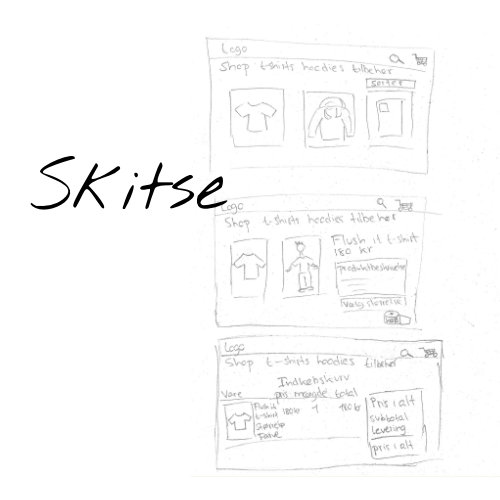 Skitse
Logo
Shop t-shirts hoodies tilbehør
sorter
Logo
Shop t-shirts hoodies tilbehør
Flush it t-shirt
180 kr
produktbeskrivelse
Vælg størrelse
Logo
Shop t-shirts hoodies tilbehør
Indkøbskurv
Vare pris mængde total
Flush it
t-shirt 180kr 1 180 kr
Størrelse
Farve
Pris i alt
subtotal
levering
pris i alt